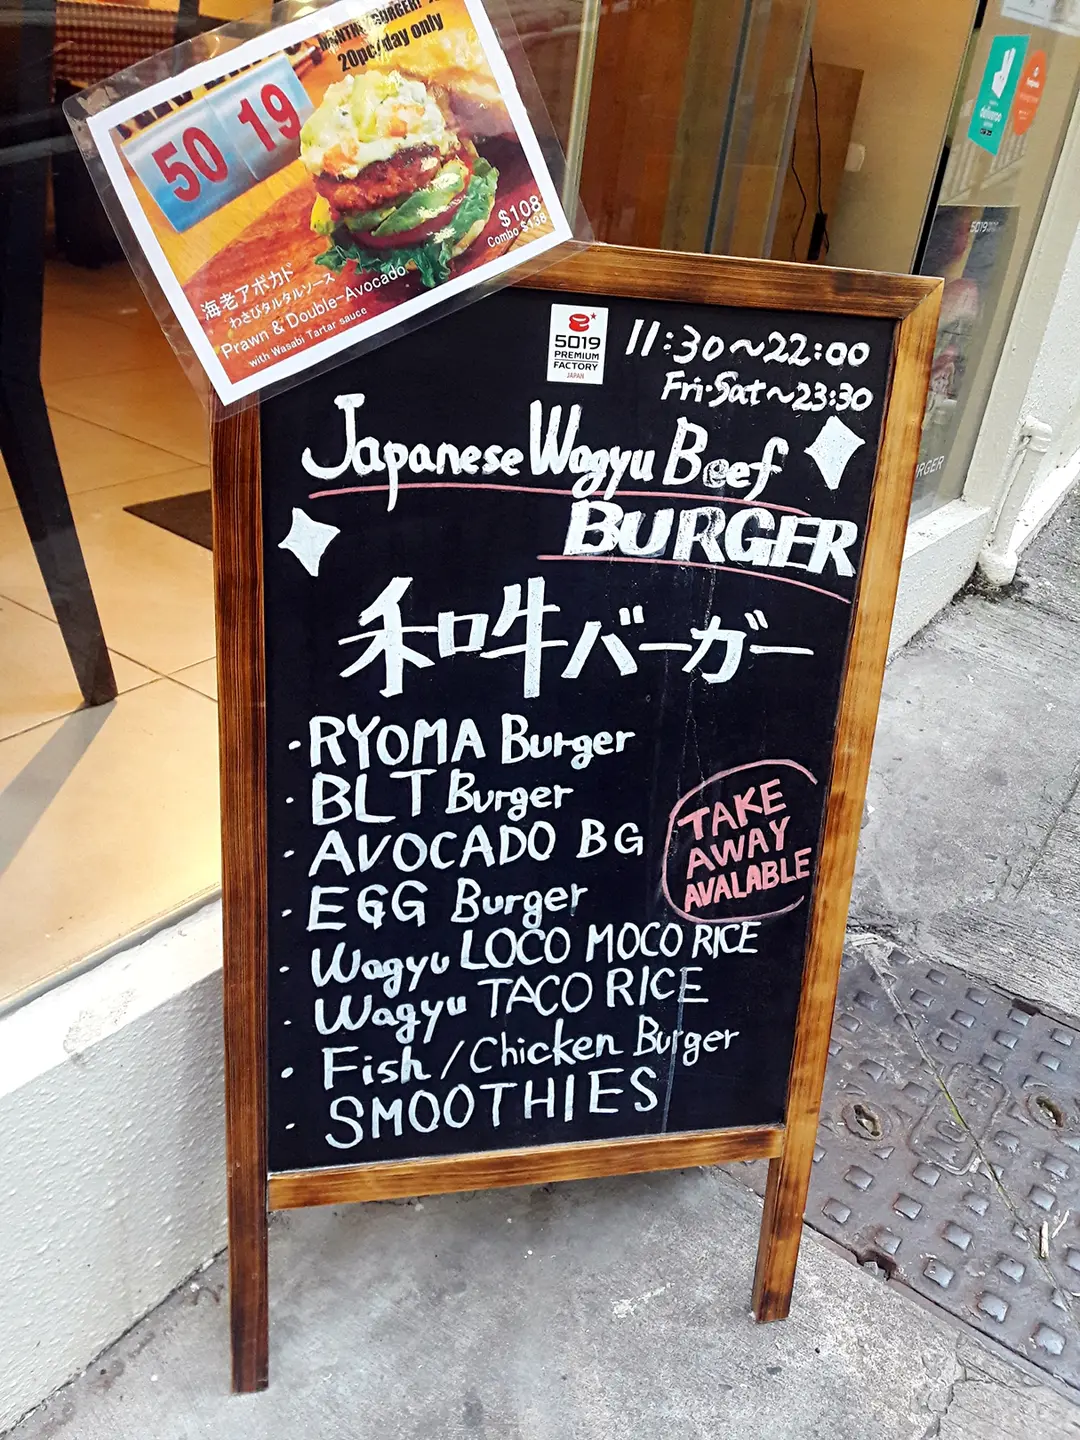 MONTHLY BURGER!
20pc/day only
50 19
$108
Combo $138
海老アボカド
わさびタルタルソース
Prawn & Double-Avocado
with Wasabi Tartar sauce
5019
PREMIUM
FACTORY
JAPAN
11:30~22:00
Fri·Sat~23:30
Japanese Wagyu Beef
BURGER
和牛バーガー
· RYOMA Burger
· BLT Burger
· AVOCADO BG
· EGG Burger
· Wagyu LOCO MOCO RICE
· Wagyu TACO RICE
· Fish/Chicken Burger
· SMOOTHIES
TAKE
AWAY
AVALABLE
deliveroo
5019